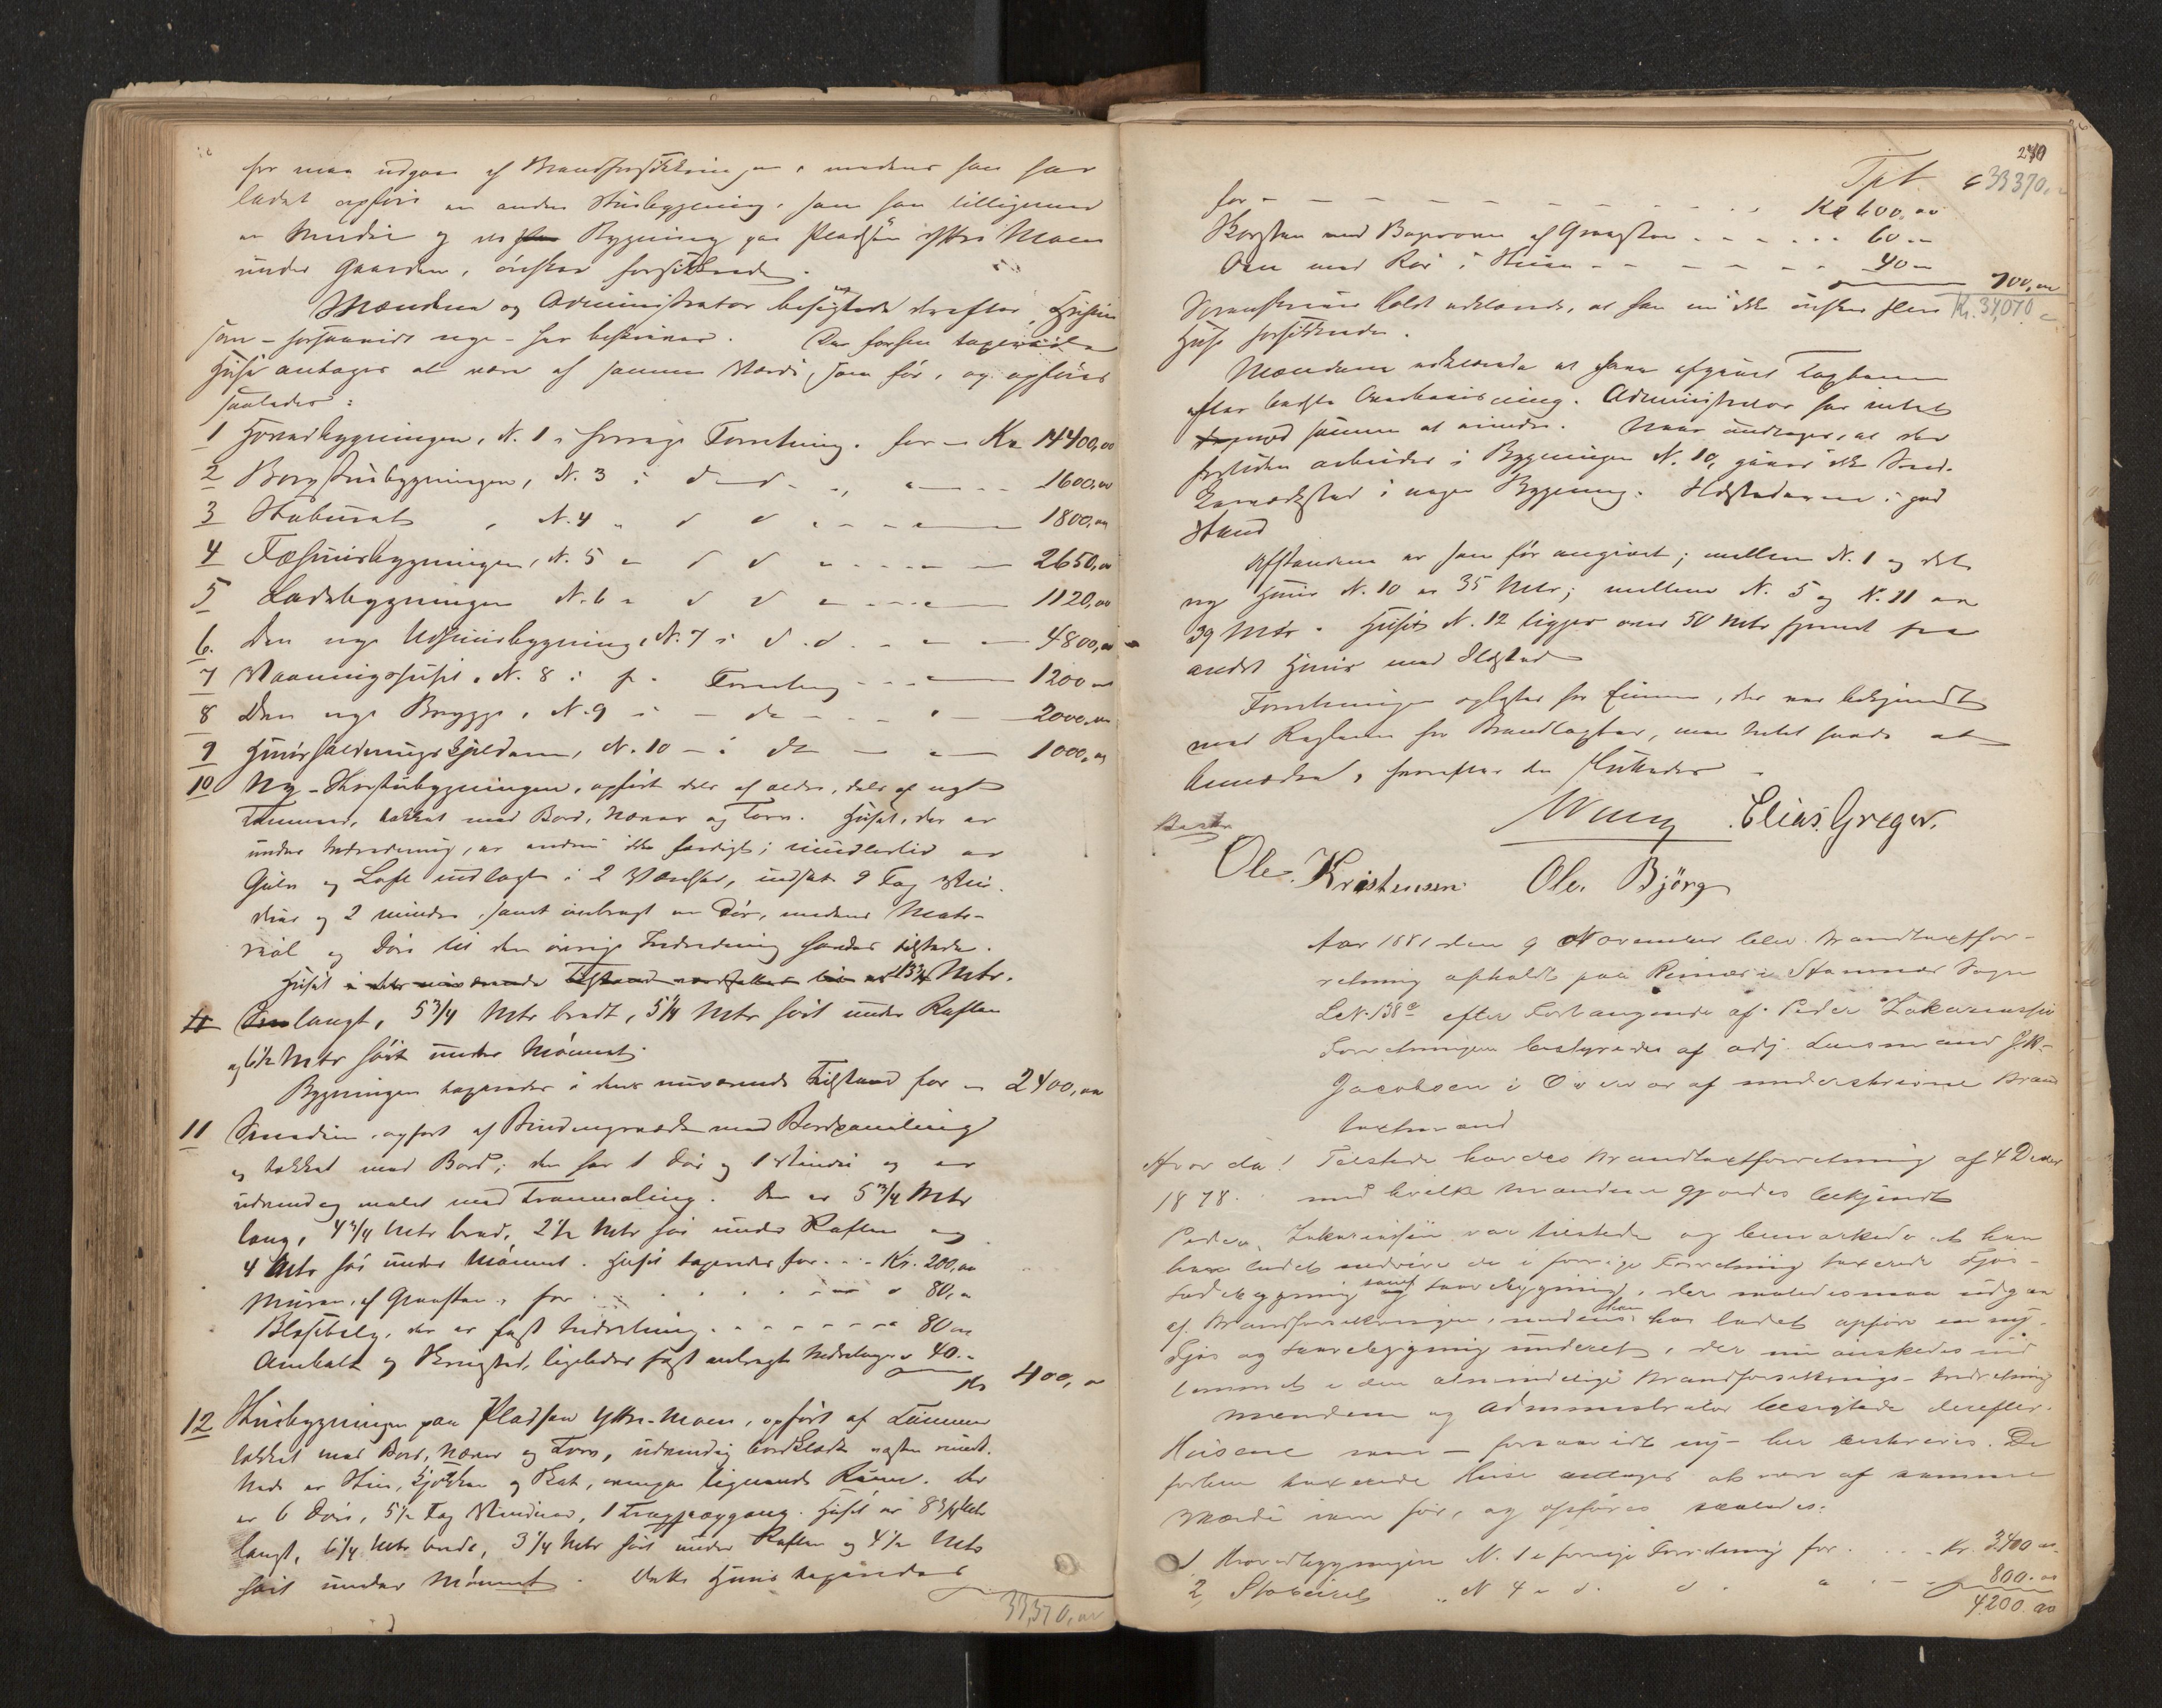 for maa udgaa af Brandforsikringen, medens han har
ladet opføre en anden Stuebygning, som han tilligemed
en Smedie og en Bygning paa Pladsen Ytre Moen
under Gaarden, ønsker forsikkrede.
Mændene og Administrator besigtede derefter Husene
som - forsaavidt nye - her beskrives. De forhen taxerede
Huse antages at være af samme Værdi, som før, og opføres
saaledes:
1 Hovedbygningen, N. 1 i forrige Forretning. for - Kr 14400,00
2 Borgstubygningen, N. 3 i d d 1600,00
3 Stabburet, N. 4 " d d 1800,00
4 Fæhuusbygningen, N. 5 " d d 2650,00
5 Ladebygningen N. 6 " d d 1120,00
6. Den nye Udhuusbygning, N. 7 i d. d. 4800,00
7 Vaaningshuset, N. 8 i f. Forretning 1200 "
8 Den nye Brygge, N. 9 i - do - 2000,00
9 Huusholdningskjelderen, N. 10 - i do 1000,00
10 Ny-Stuebygningen, opført dels af ældre, dels af nyt
Tømmer, tækket med Bord, Næver og Torv. Huset, der er
under Indredning, er endnu ikke færdigt; imidlertid er
Gulv og Loft indlagt i 2 Værelser, indsat 9 Fag Vin-
duer og 2 mindre, samt anbragt en Dør, medens Mate-
rial og Døre til den øvrige Indredning havdes tilstede.
Huset i dets nuværende Tilstand er 13¼ Mtr.
langt, 5¾ Mtr bredt, 5¼ Mtr høit under Raften
og 6½ Mtr høit under Mønnet.
Bygningen taxeredes i dens nuværende Tilstand for - 2400,00
11 Smedien, opført af Bindingsværk med Bordpaneling
og tækket med Bord; den har 1 Dør og 1 Vindu og er
udvendig malet med Tranmaling. Den er 5¾ Mtr
lang, 4¾ Mtr bred, 2½ Mtr høi under Raften og
4 Mtr høi under Mønnet. Huset taxeredes for - Kr. 200,00
Muren, af Graasten, for 80,"
Blæsebelg, der er fast Indretning 80 "
Ambolt og Skruestik, ligeledes fast anbragte Indretninger 40.-
Kr 400,"
12 Stuebygningen paa Pladsen Ytre-Moen, opført af Tømmer
tækket med Bord, Næver og Torv, udvendig bordklædt næsten rundt.
Nede er Stue, Kjøkken og Kot, ovenpaa lignende Rum. Der
er 6 Døre, 5½ Fag Vinduer, 1 Trappegang. Huset er 8¾ Mtr
langt, 6¼ Mtr bredt, 3¼ Mtr høit under Raften og 4½ Mtr
høit under Mønnet. Dette Huus taxeredes
33,370,00
240
Tpt. 33370,"
for - Kr 600,00
Skorsten med Bagerovn af Graasten 60 "
Ovn med Rør i Stuen 40 "
700,00
Holst erklærede, at han nu ikke ønsker flere Kr. 34,070
Huse forsikkrede.
Mændene erklærede at have afgivet Taxterne
efter bedste Overbeviisning. Administrator har intet
mod samme at erindre. Naar undtages, at der
forefindes Ildsteder i Bygningen N. 10, gives ikke
i nogen Bygning. Ildstederne i god
Stand
Afstandene er som før angivet; mellem N. 1 og det
nye Huus N. 10 er 35 Mtr; mellem N. 5 og N. 11 er
39 Mtr. Huset N. 12 ligger over 50 Mtr fjernt fra
andet Huus med Ildsted
Forretningen oplæstes for Eieren, der var bekjendt
med Reglerne for Brandtaxter, men intet havde at
bemærke, hvorefter den sluttedes
Elias Greger.
Ole Kristensen Ole Bjørg
Aar 1881 den 9 November blev Brandtaxtfor-
retning afholdt paa Reines i Stamnes Sogn
L.N. 138a efter Forlangende af Peder Zakariassen
Forretningen bestyredes af adj. Lensmand J.M.
Jacobsen i Overvær af underskrevne Brand
taxtmænd
Hvorda! Tilstede havdes Brandtaxtforretning af 4 Decbr
1878. med hvilke Mændene gjordes bekjendt
Peder Zakariassen var tilstede og bemærkede at han
have ladet nedrive de i forrige Forretning taxerede Fjøs-
ladebygning samt Lavebygning, der saaledes maa udgaa
af Brandforsikringen, medens han har ladet opføre en ny
Fjøs og Lavebygning under et, der nu ønskedes ind
lemmet i den almindelige Brandforsikrings-Indretning
Mændene og Administrator besigtede derefter
Husene som - forsaavidt ny - her beskrives. De
forhen taxerede Huse antages at være af samme
Værdi som før, og opføres saaledes:
1. Hovedbygningen N. 1 i forrige Forretning for Kr. 3400 "
2, Stabburet " N 4 " d. d. 800. "
4200. 00